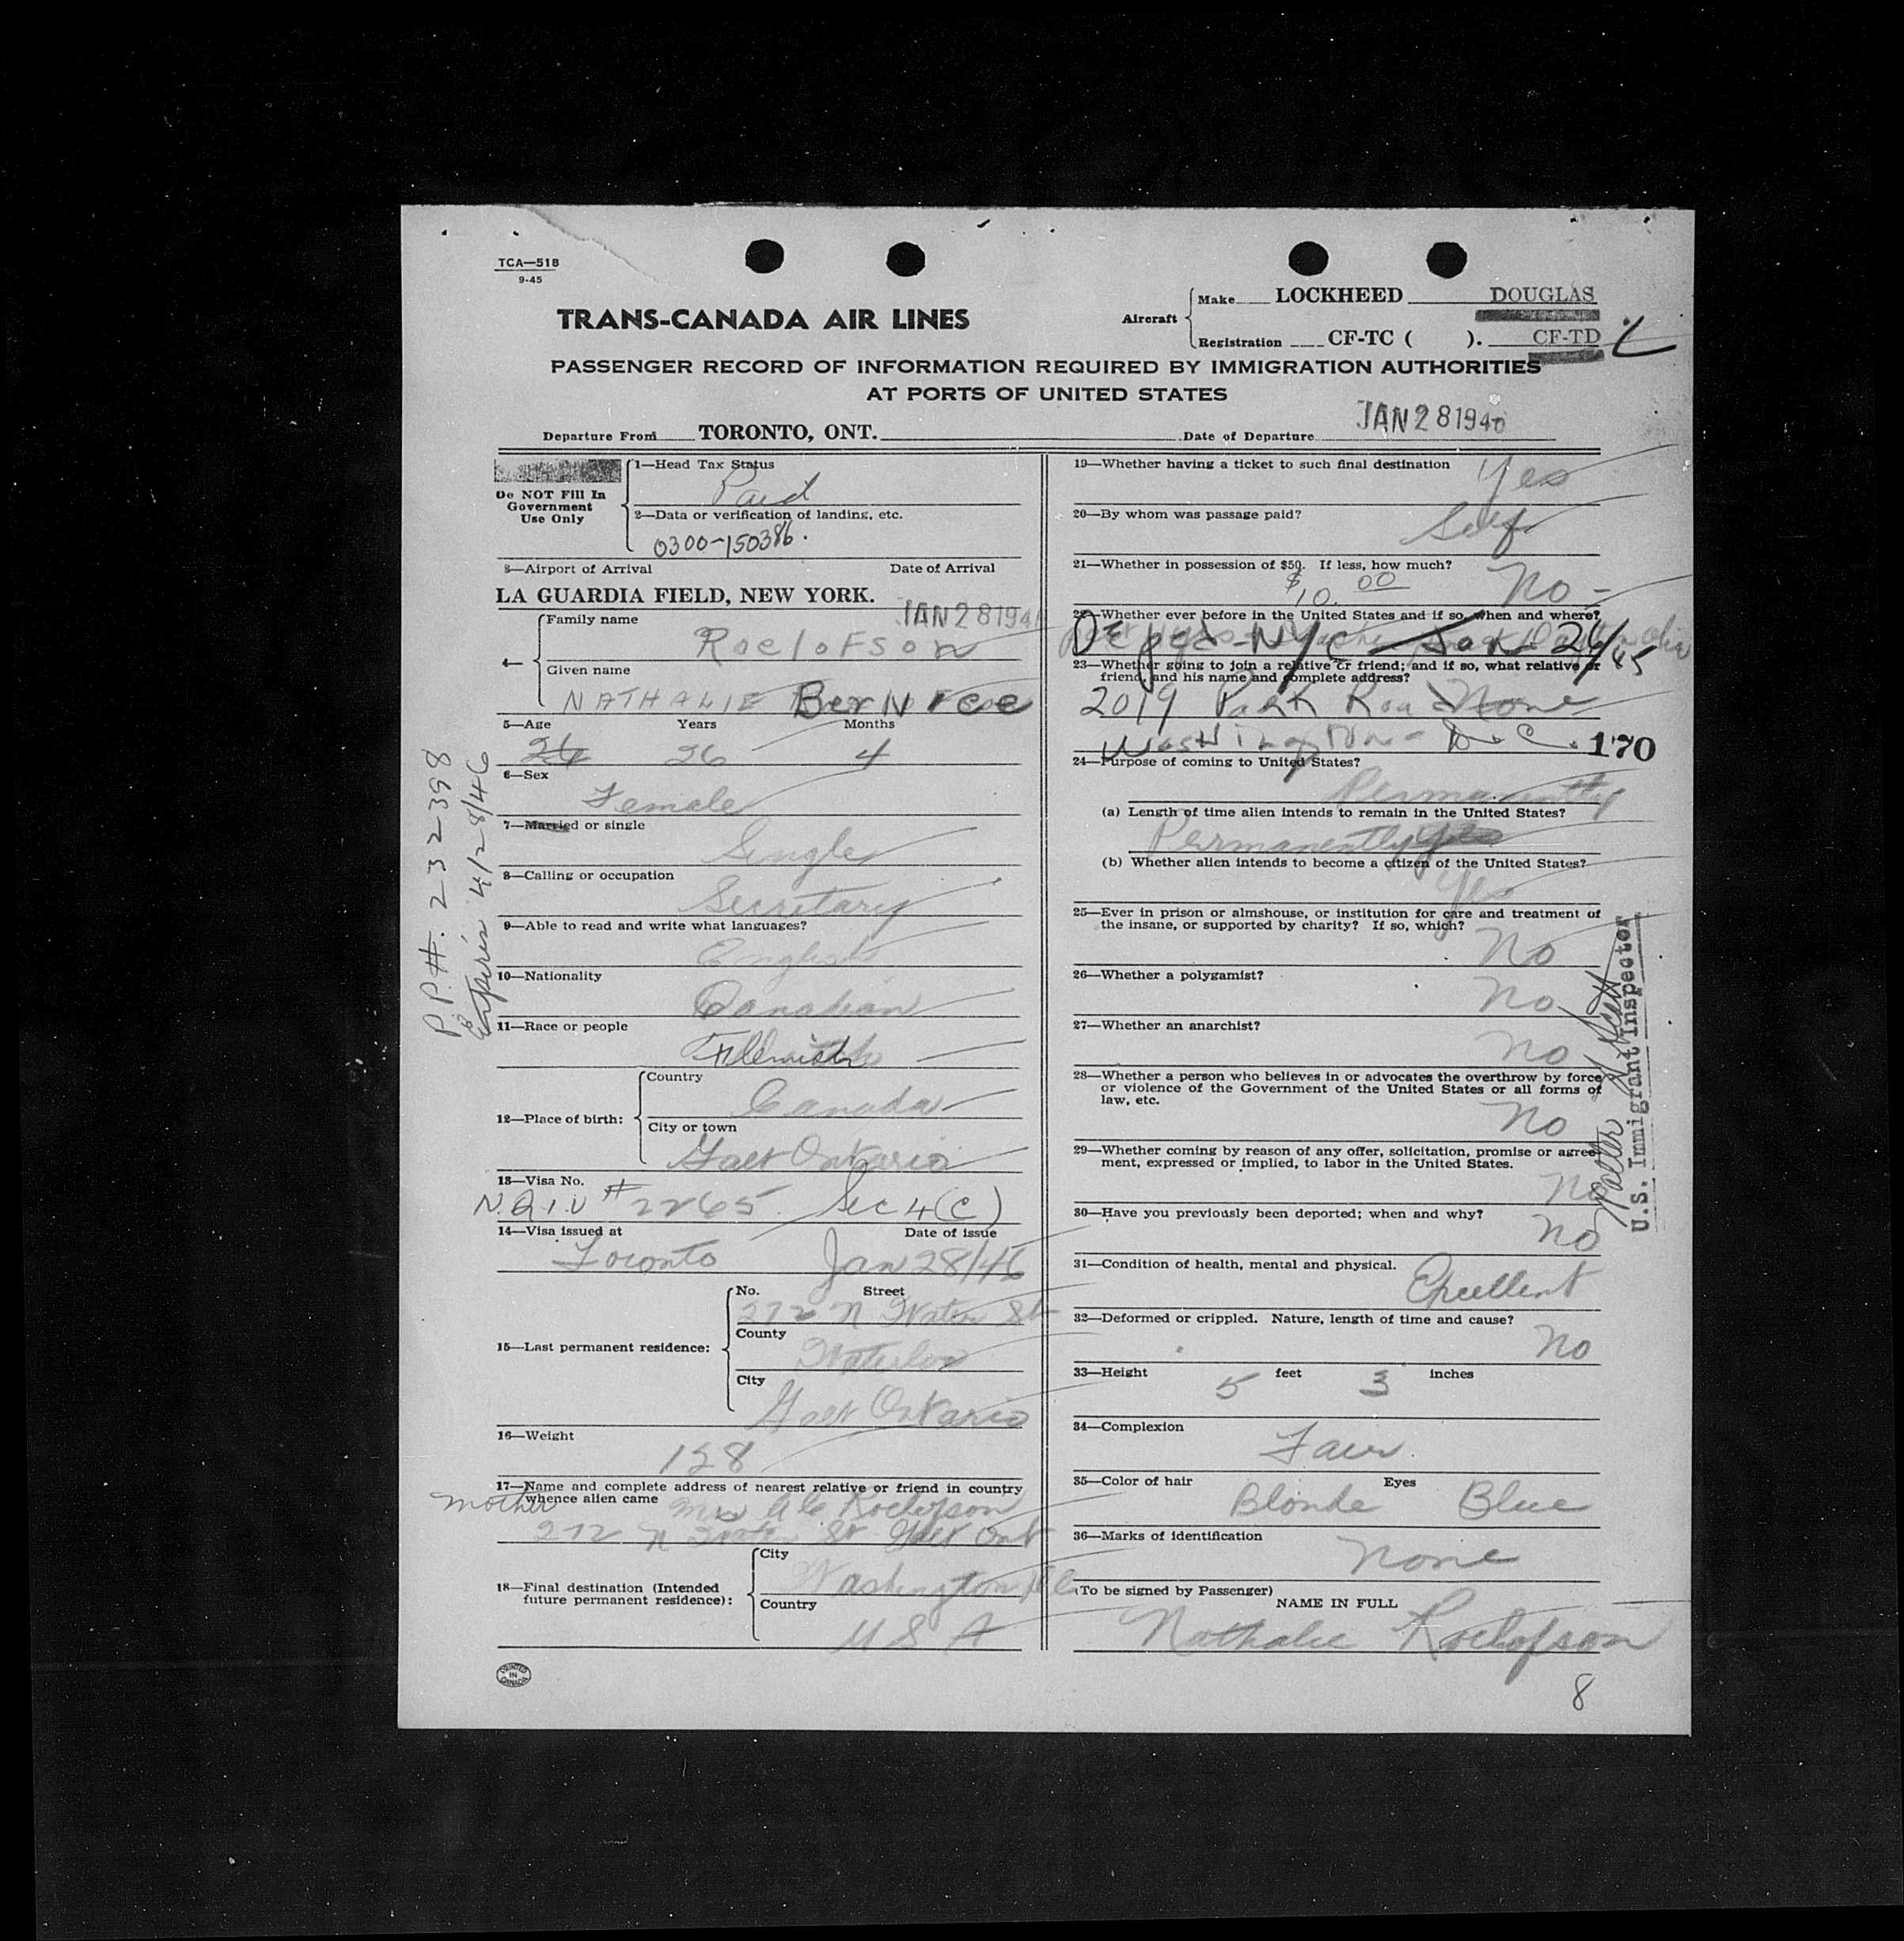 TCA—518
9-45
TRANS-CANADA AIR LINES
Aircraft
Make LOCKHEED DOUGLAS
Registration CF-TC ( ). CF-TD L
PASSENGER RECORD OF INFORMATION REQUIRED BY IMMIGRATION AUTHORITIES
AT PORTS OF UNITED STATES
Departure From TORONTO, ONT. Date of Departure JAN 28 194
Do NOT Fill In
Government
Use Only
1—Head Tax Status
Paid
2—Data or verification of landing, etc.
0300-150386.
3—Airport of Arrival Date of Arrival
LA GUARDIA FIELD, NEW YORK. JAN 28 194
4—
Family name
Roelofson
Given name
NATHALIE Bernice
5—Age Years Months
26 26 4
6—Sex
Female
7—Married or single
Single
8—Calling or occupation
Secretary
9—Able to read and write what languages?
English
10—Nationality
Canadian
11—Race or people
Flemish
12—Place of birth:
Country
Canada
City or town
Galt Ontario
13—Visa No.
N.Q.I.V # 2265 Sec 4(c)
14—Visa issued at Date of issue
Toronto Jan 28/46
15—Last permanent residence:
No. Street
272 N Water St
County
Waterloo
City
Galt Ontario
16—Weight
128
17—Name and complete address of nearest relative or friend in country
whence alien came
mother Mrs A C Roelofson
272 N Water St Galt Ont
18—Final destination (Intended
future permanent residence):
City
Washington DC
Country
U S A
PRINTED IN CANADA
P.P.#. 232398
Expires 4/28/46
19—Whether having a ticket to such final destination
Yes
20—By whom was passage paid?
Self
21—Whether in possession of $50. If less, how much?
$10.00 No -
22—Whether ever before in the United States and if so, when and where?
Dep'd - NYC - Jan 26/45
23—Whether going to join a relative or friend; and if so, what relative or
friend, and his name and complete address?
2019 Park Road None
Washington - D.C. 170
24—Purpose of coming to United States?
Permanently
(a) Length of time alien intends to remain in the United States?
Permanently yes
(b) Whether alien intends to become a citizen of the United States?
Yes
25—Ever in prison or almshouse, or institution for care and treatment of
the insane, or supported by charity? If so, which?
No
26—Whether a polygamist?
No
27—Whether an anarchist?
No
28—Whether a person who believes in or advocates the overthrow by force
or violence of the Government of the United States or all forms of
law, etc.
No
29—Whether coming by reason of any offer, solicitation, promise or agree-
ment, expressed or implied, to labor in the United States.
No
30—Have you previously been deported; when and why?
No
31—Condition of health, mental and physical.
Excellent
32—Deformed or crippled. Nature, length of time and cause?
No
33—Height 5 feet 3 inches
34—Complexion
Fair
35—Color of hair Eyes
Blonde Blue
36—Marks of identification
None
(To be signed by Passenger)
NAME IN FULL
Nathalie Roelofson
8
Walter Scott
U.S. Immigrant Inspector